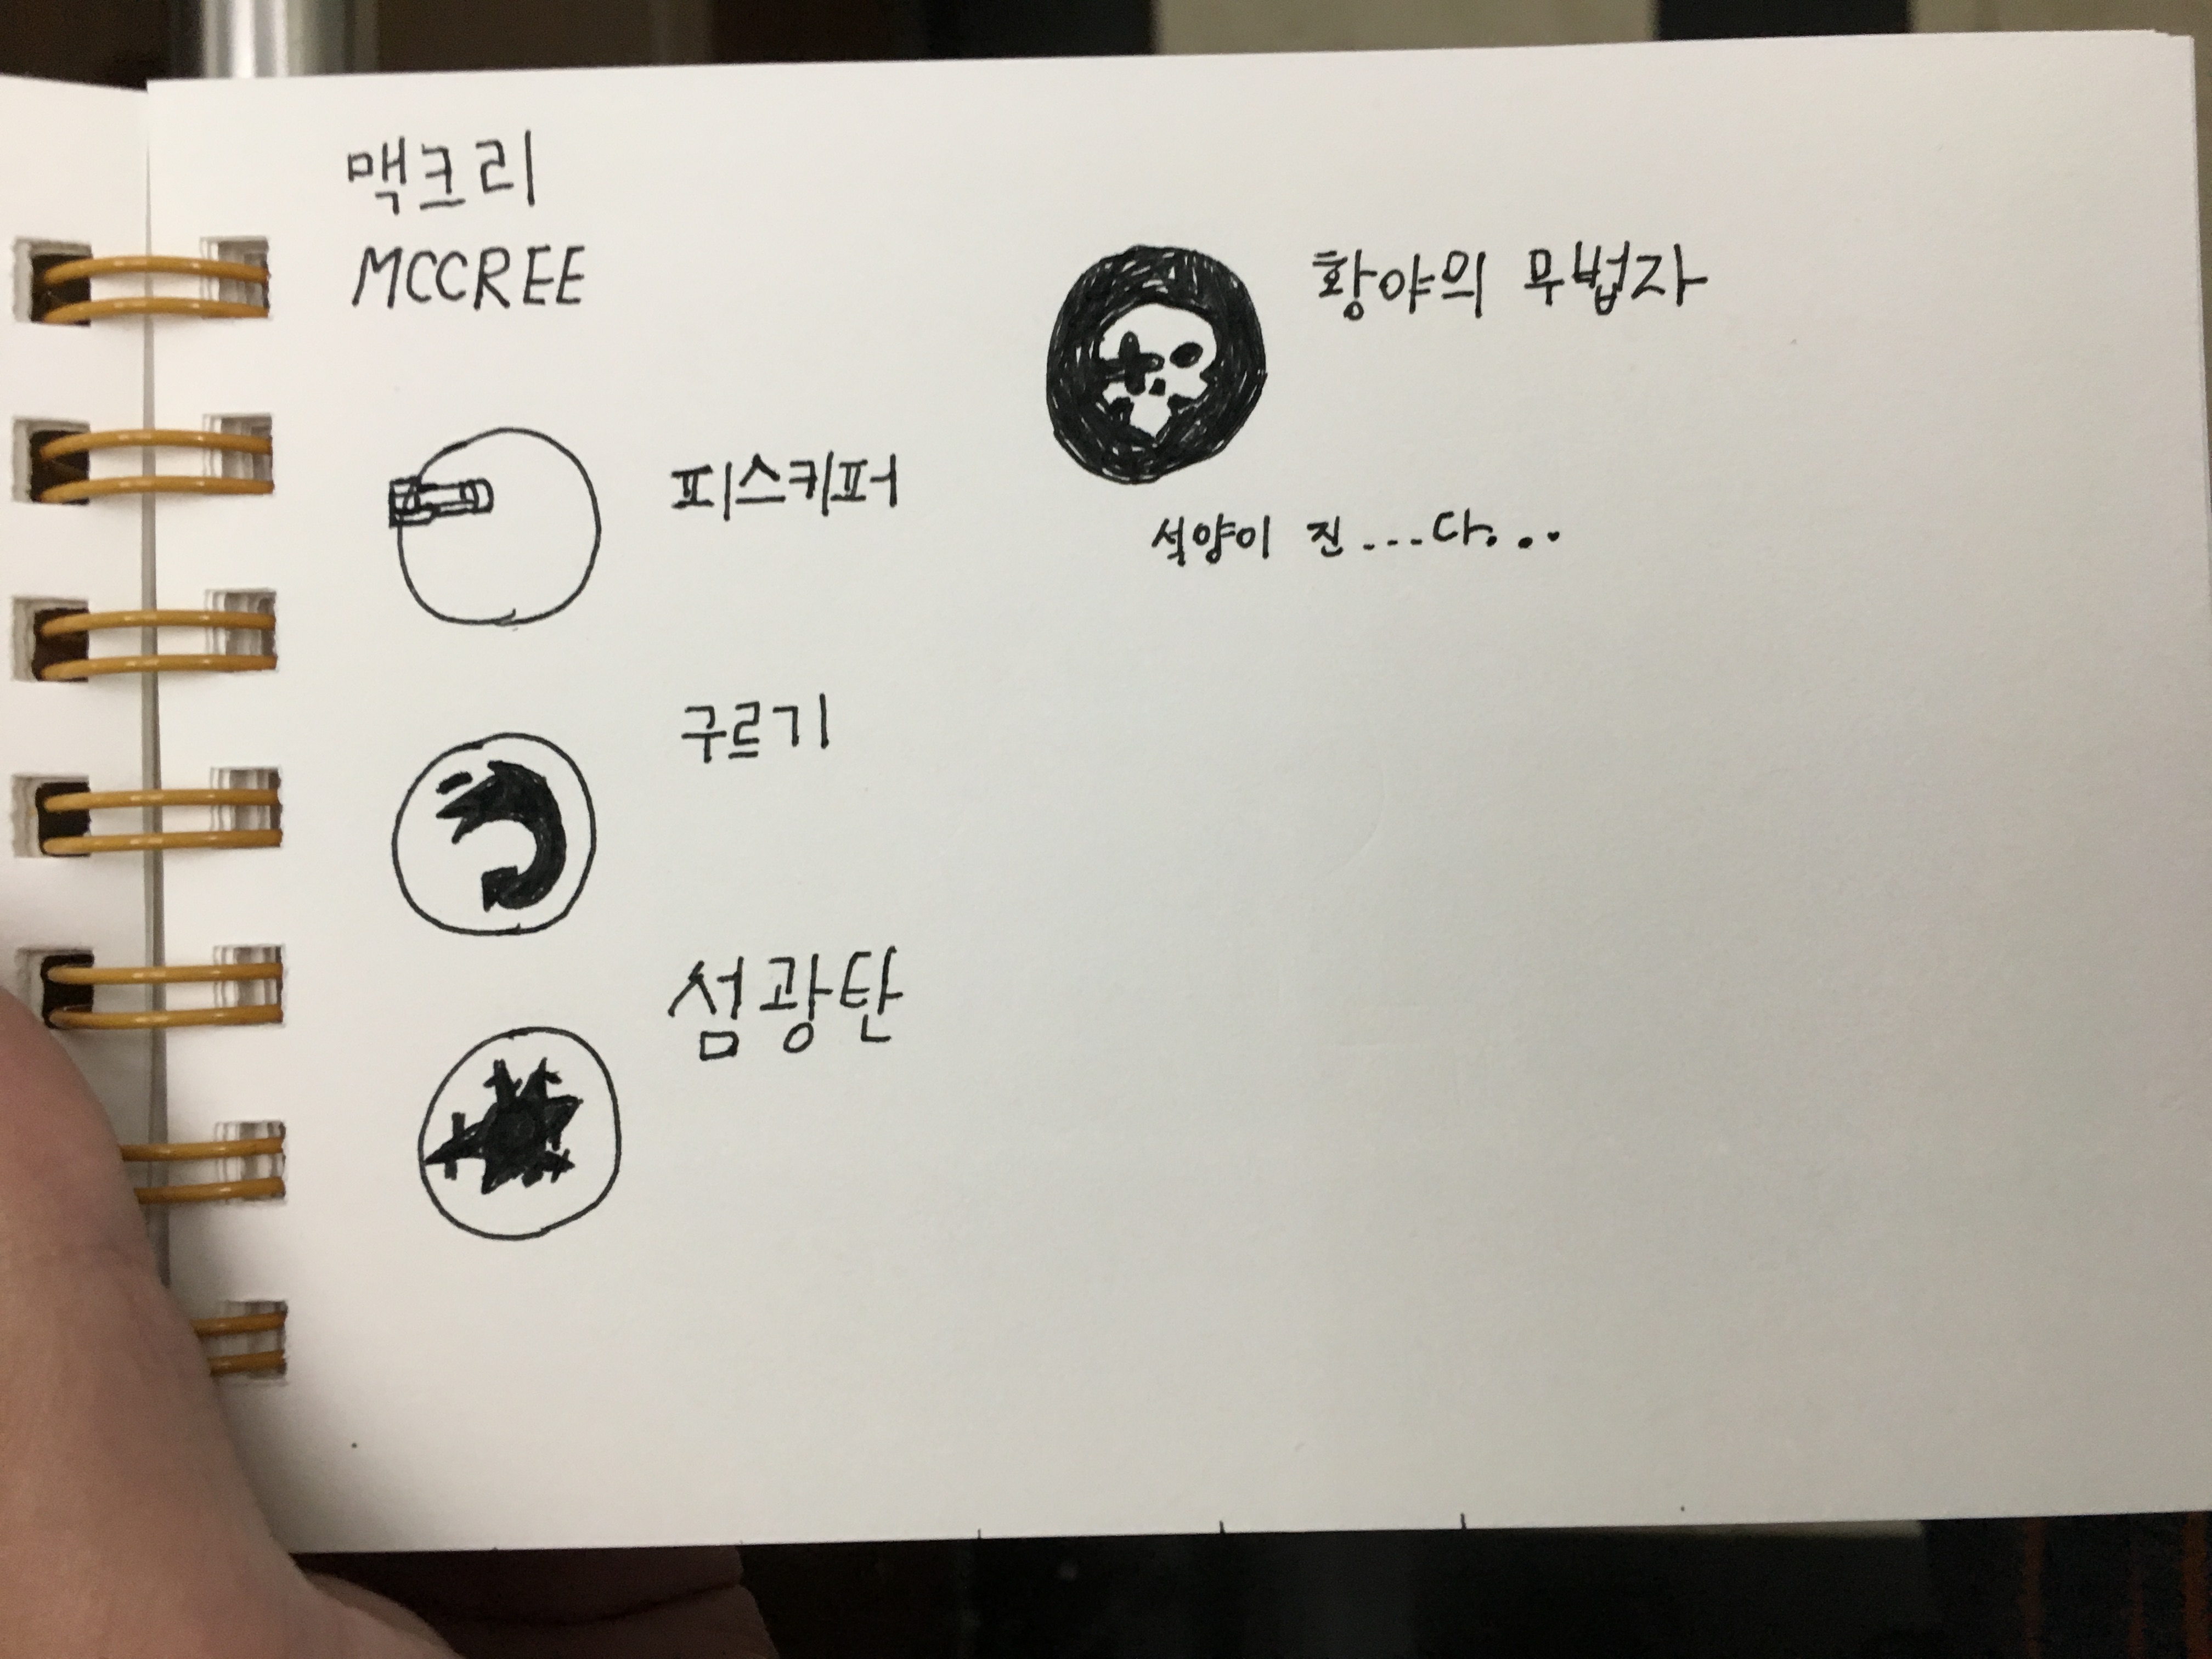 맥크리
MCCREE
피스키퍼
구르기
섬광탄
황야의 무법자
석양이 진...다...